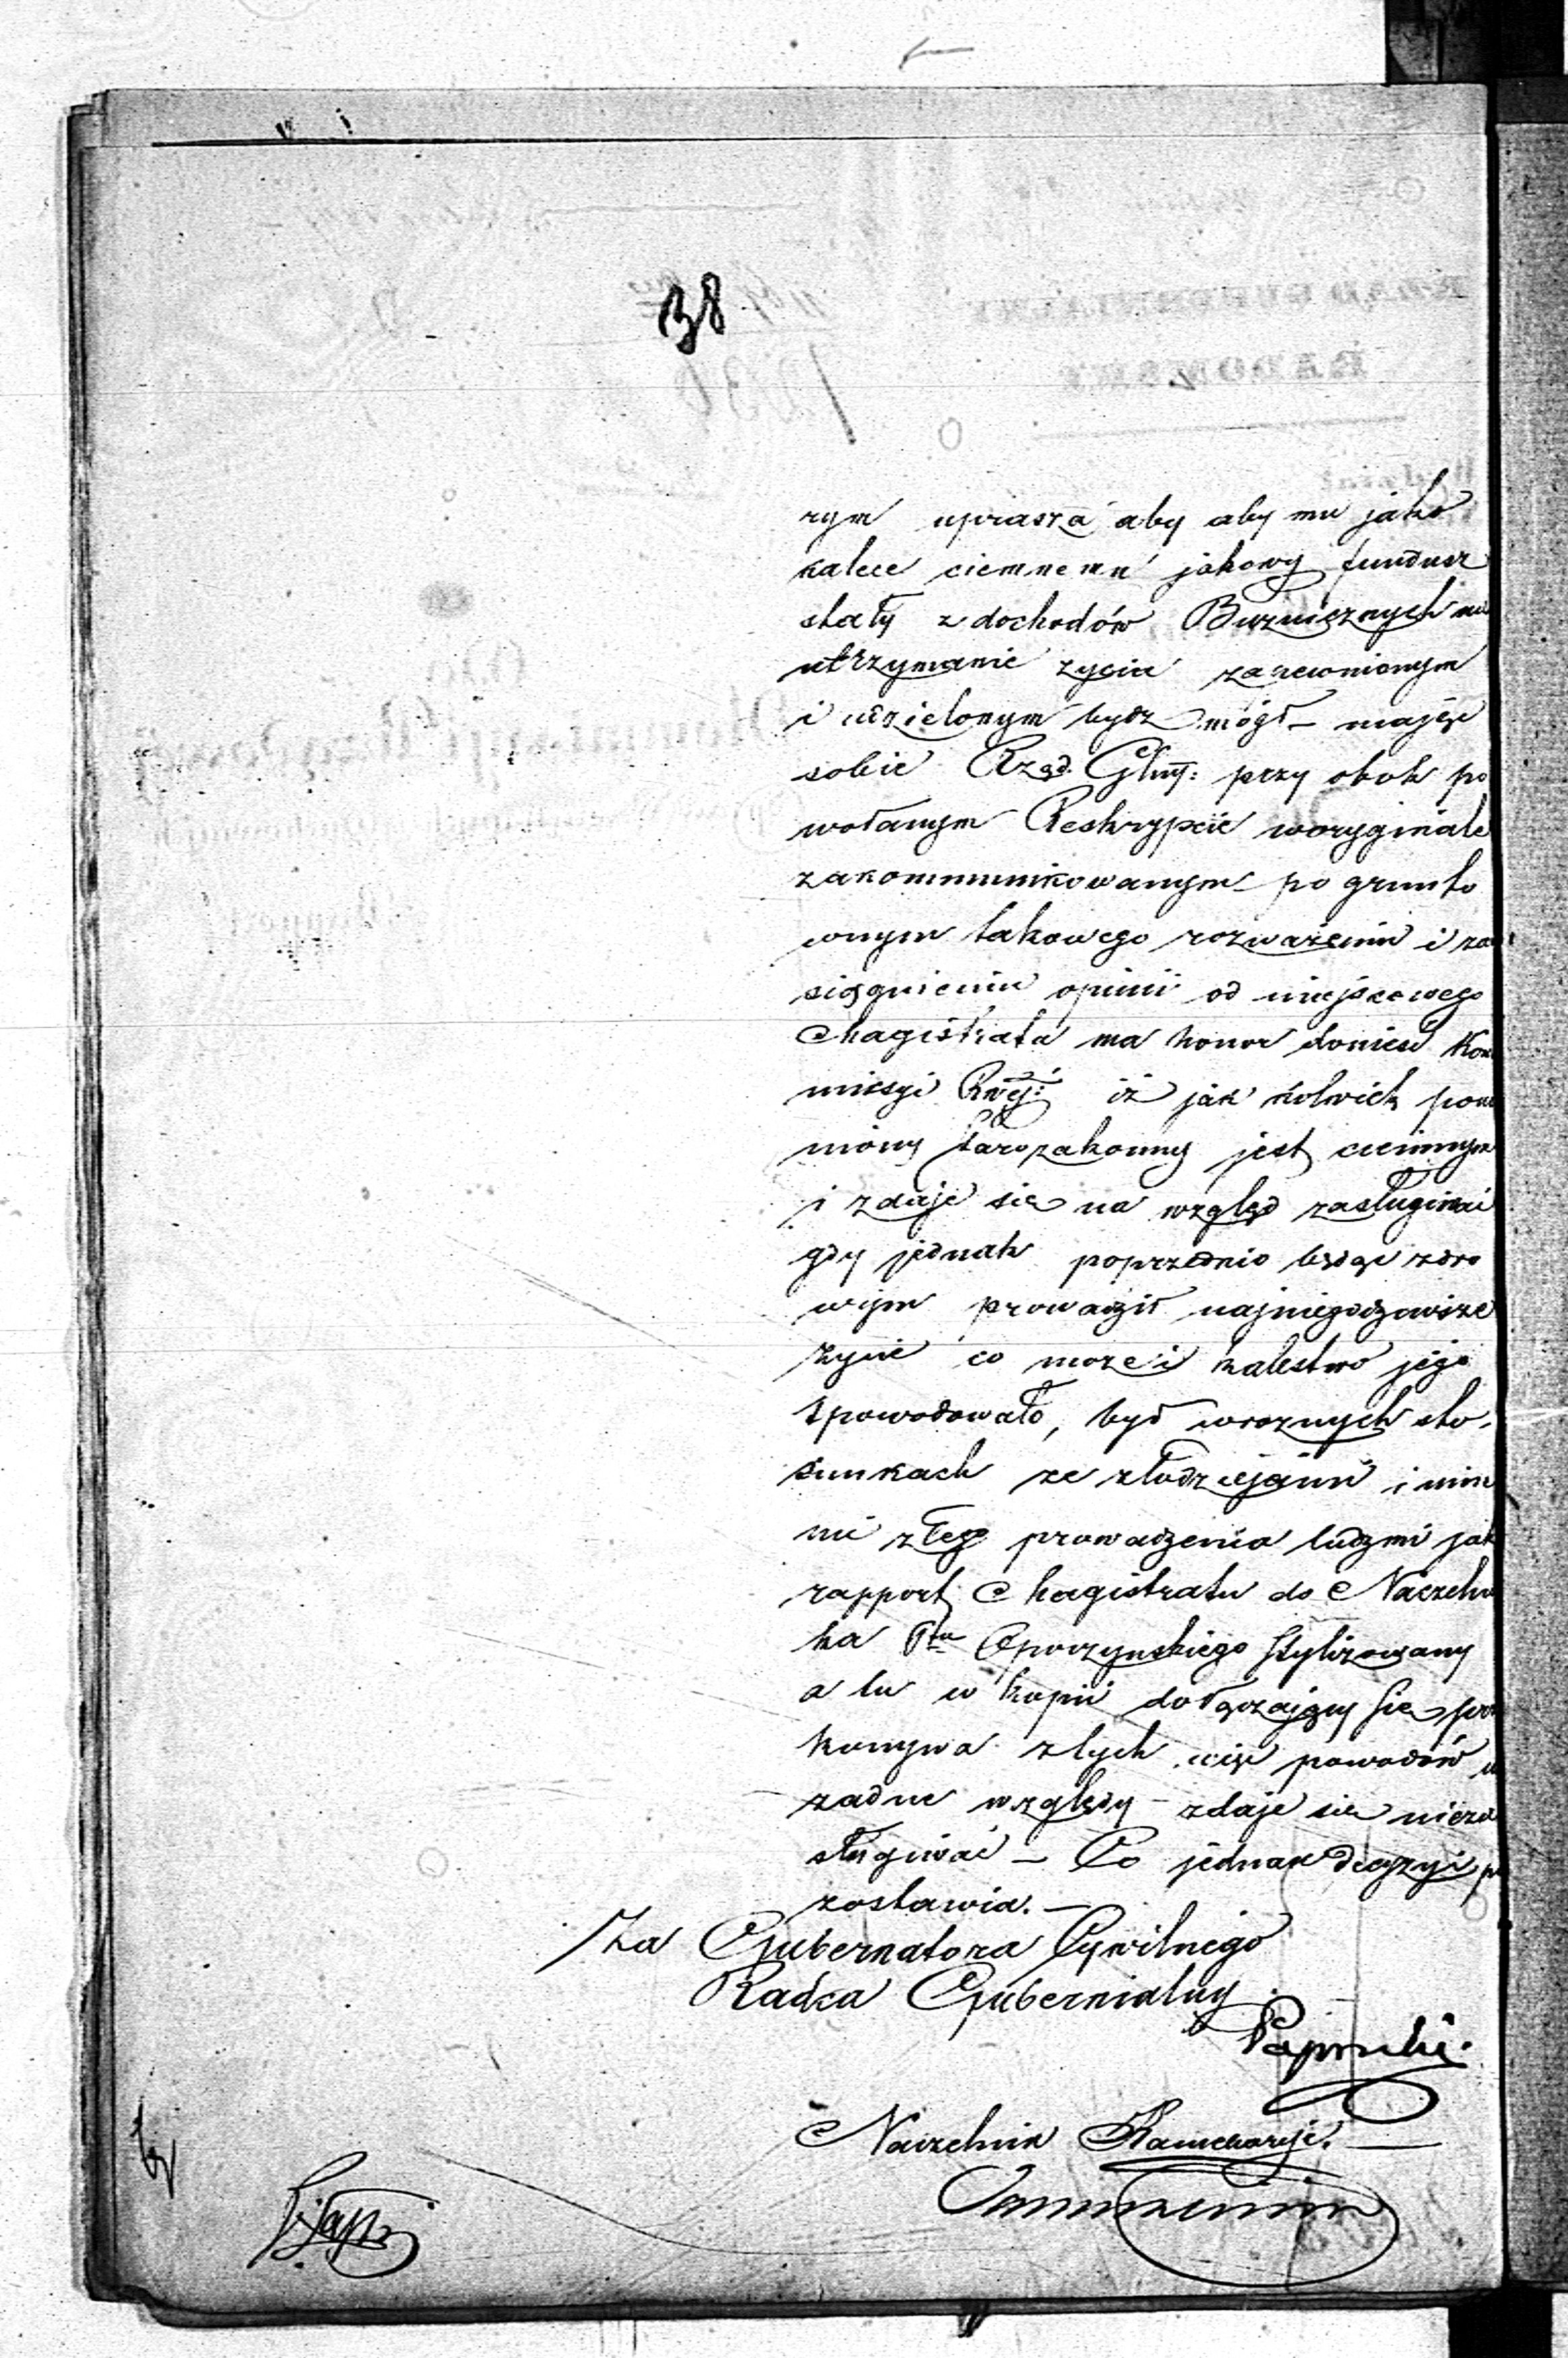 38
rym uprasza aby aby mu jako
kalece ciemnemu jakowy fundusz
stały z dochodów Bużnicznych na
utrzymanie zycia zapewnionym
i udzielonym bydz mógł – mając
sobie Rząd Głny: przy obok po
wołanym Reskrypcie woryginale
zakommunikowanym po grunto
wnym takowego rozważeniu i za
siągnieniu opinii od miejscowego
Magistratu ma honor donieść Kom
missyi Rwéj: iż jak kolwiek pom
niony Starozakonny jest ciemnym
i zdaje się na wzgląd zasługiwać
gdy jednak poprzednio będąc zdro
wym prowadził najniegodziwsze
życie co może i kalectwo jego
spowodowało, był wroznych sto,
sunkach ze złodziejami i inne
mi złego prowadzenia ludzmi jak
rapport Magistratu do Naczelni
ka Ptu Opoczynskiego stylizowany
a tu w kopii dołączający się prze
konywa z tych więc powodów
zadne względy – zdaje sie nieza
sługiwać – Co jednak decyzyi po
zostawia. –
Za Gubernatora Cywilnego
Radca Gubernialny
Paprocki.
Naczelnik Kancellaryi. –